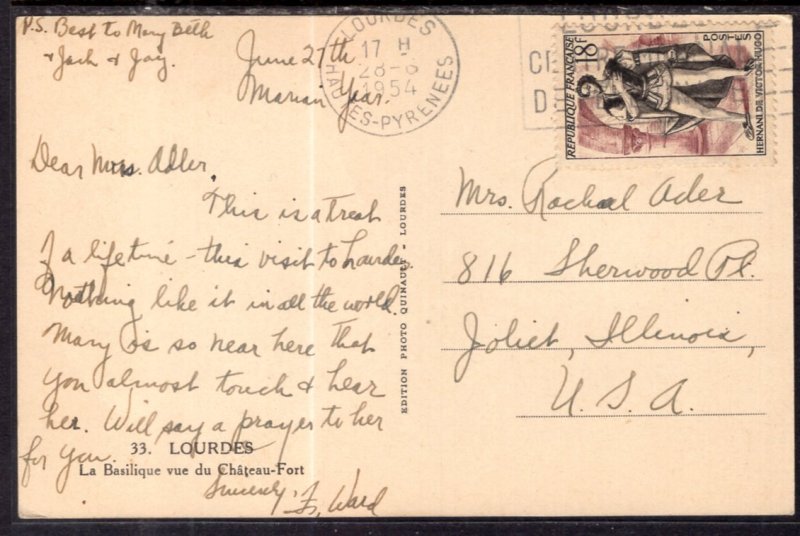 P.S. Best to Mary Beth
& Jack & Jay.
June 27th
Marian Year.
Dear Mrs. Adler,
This is a treat
of a lifetime - this visit to Lourdes.
Nothing like it in all the world.
Mary is so near here that
you almost touch & hear
her. Will say a prayer to her
for you.
Sincerely,
Fr. Ward
33. LOURDES
La Basilique vue du Château-Fort
EDITION PHOTO QUINAULT - LOURDES
LOURDES
17 H
28-6
1954
HAUTES-PYRENEES
REPUBLIQUE FRANÇAISE
18F
POSTES
HERNANI DE VICTOR HUGO
Mrs. Rachael Ader
816 Sherwood Pl.
Joliet, Illinois,
U.S.A.